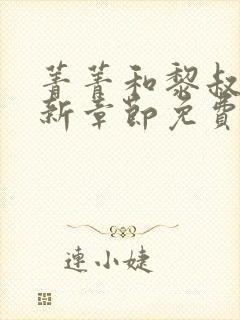 菁菁和黎叔
新章節免費
連小婕